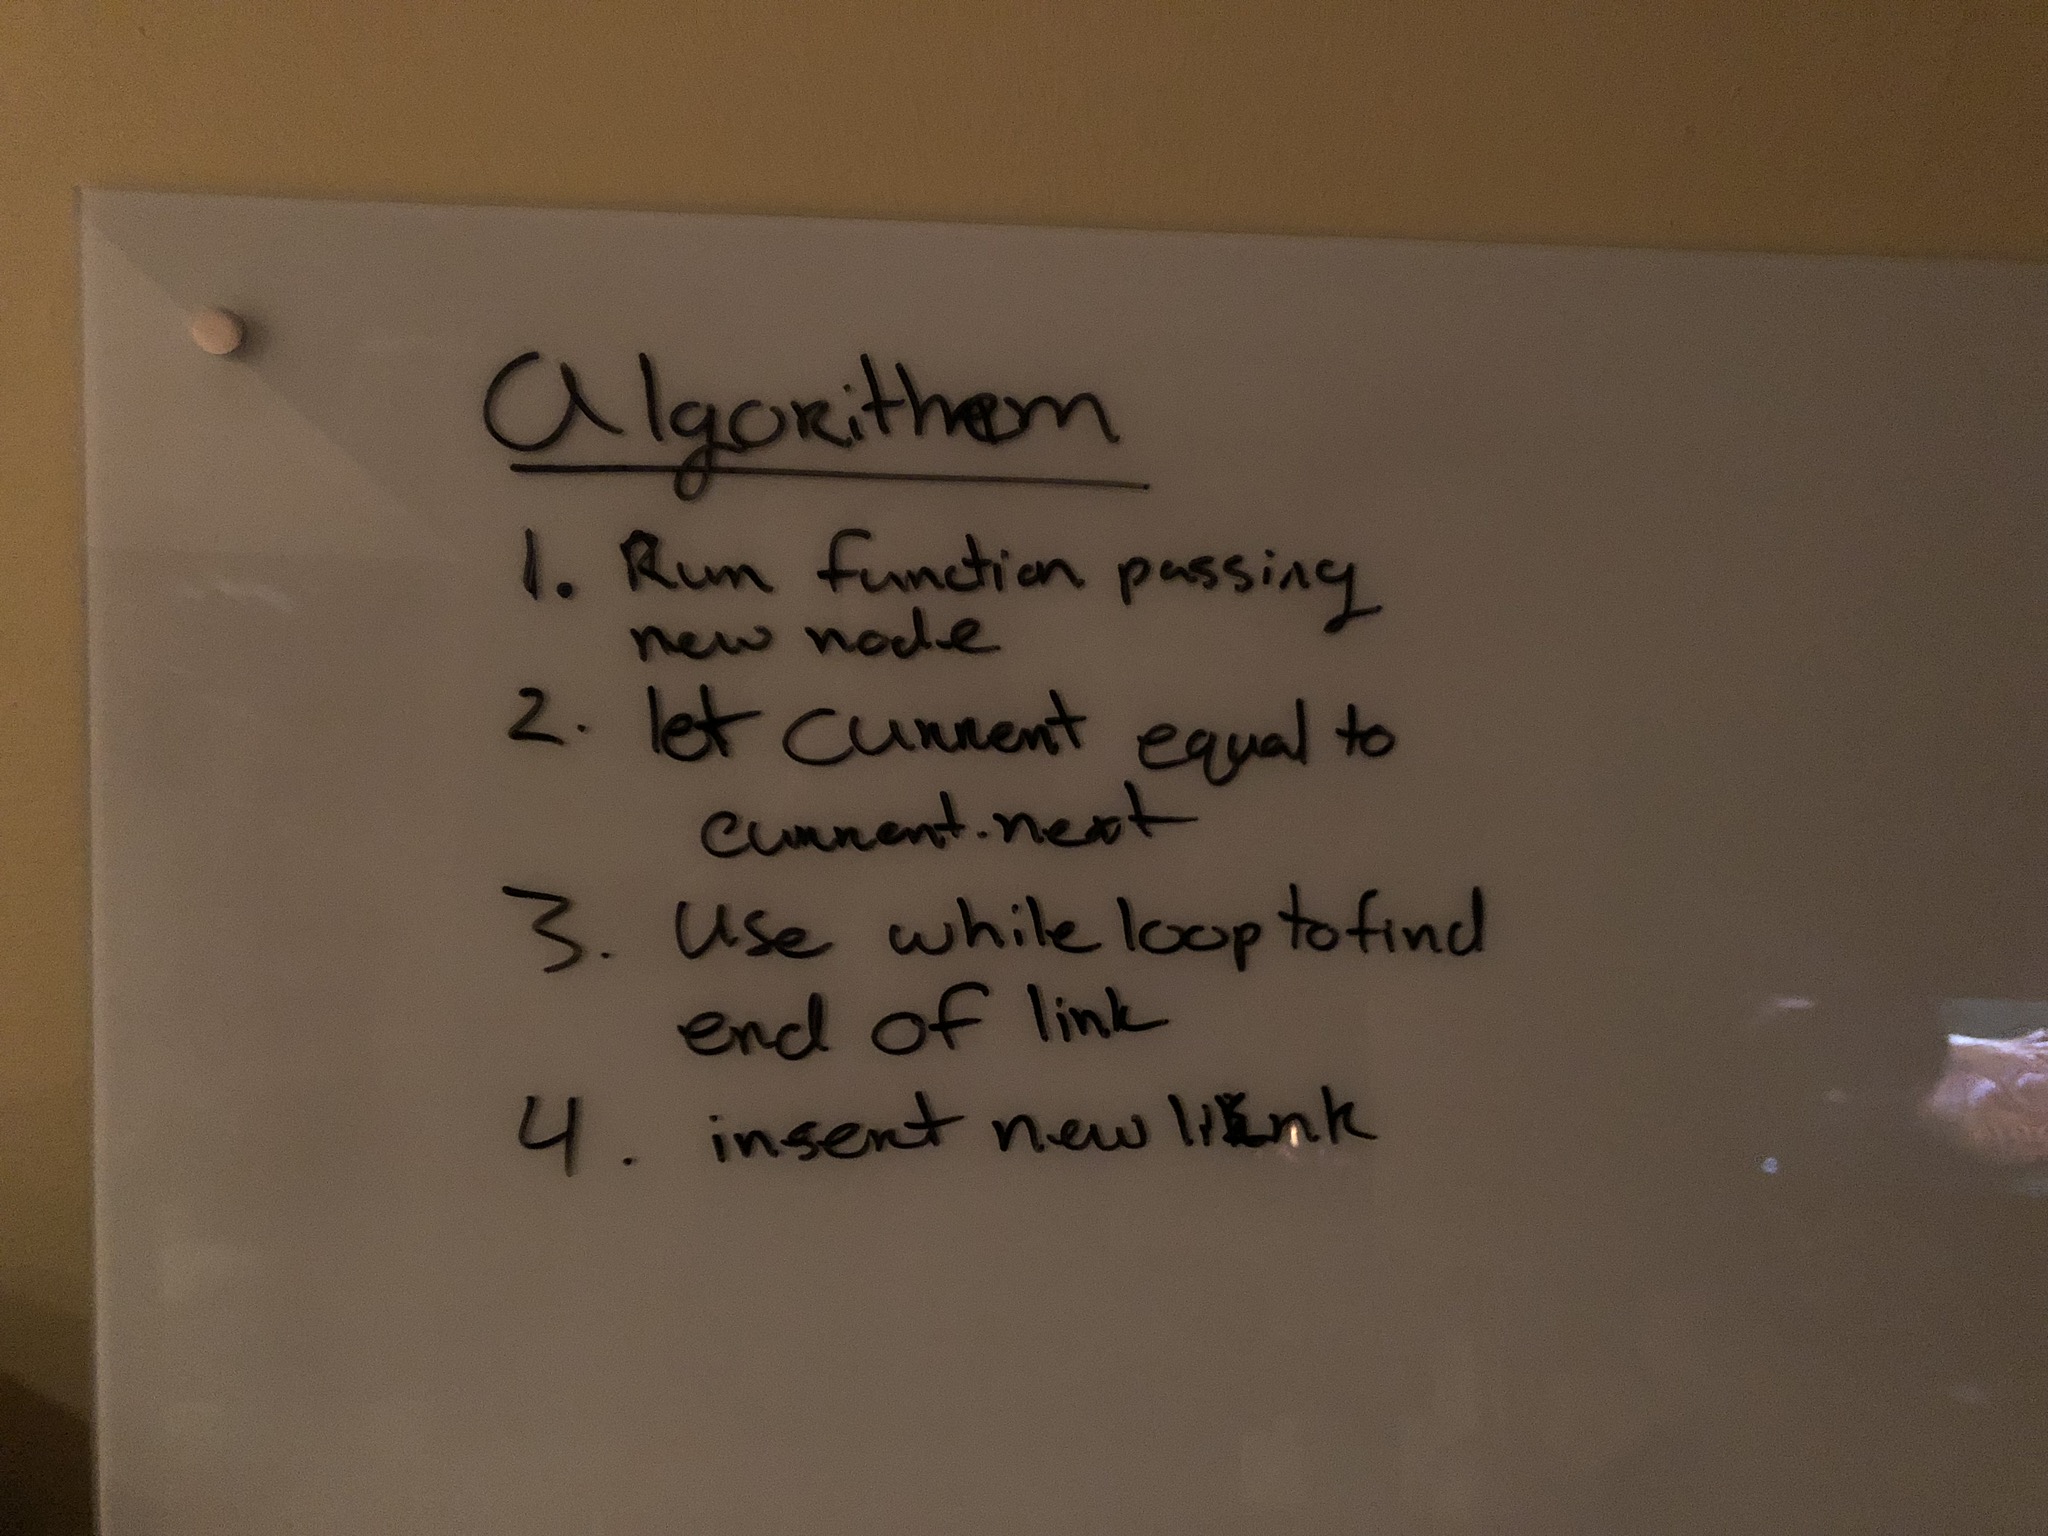 Algorithem
1. Run function passing
new node
2. let current equal to
current.next
3. Use while loop to find
end of link
4. insert new link